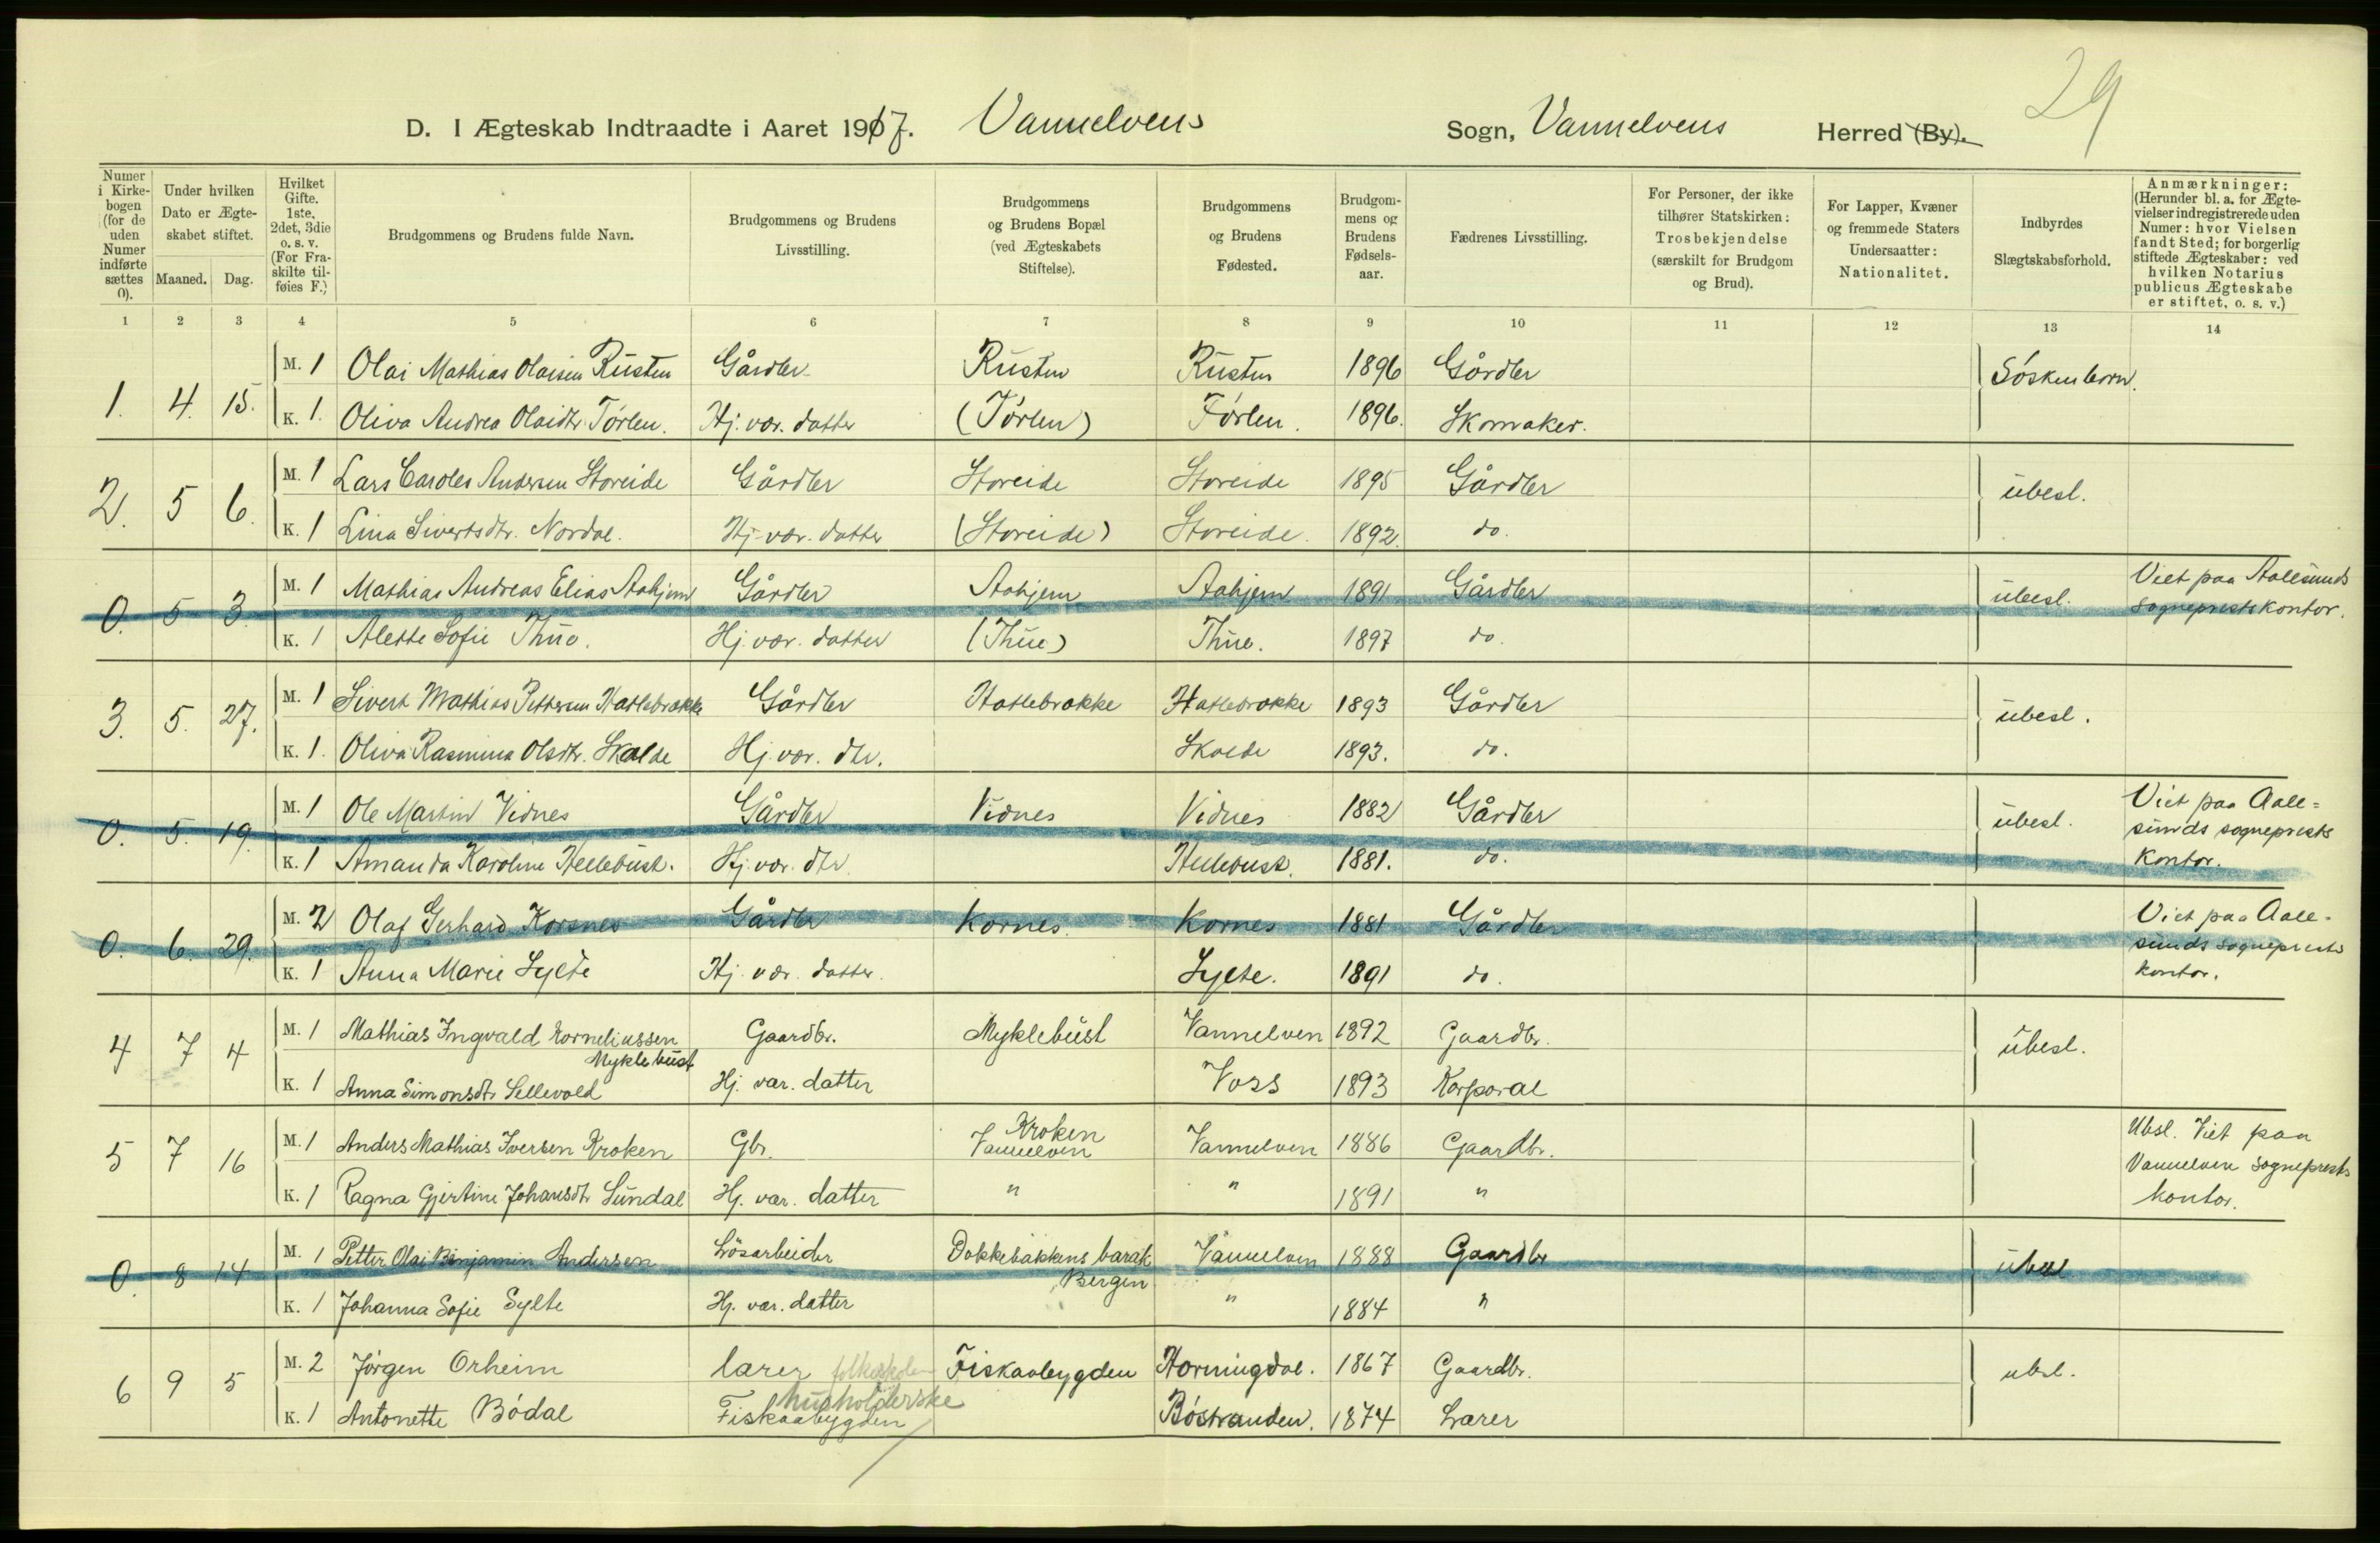 29
D. I Ægteskab Indtraadte i Aaret 1917. Vannelvens Sogn, Vannelvens Herred (By).
Numer i Kirkebogen (for de uden Numer indførte sættes 0).
Under hvilken Dato er Ægteskabet stiftet.
Maaned. Dag.
Hvilket Gifte. 1ste, 2det, 3die o. s. v. (For Fraskilte tilføies F.)
Brudgommens og Brudens fulde Navn.
Brudgommens og Brudens Livsstilling.
Brudgommens og Brudens Bopæl (ved Ægteskabets Stiftelse).
Brudgommens og Brudens Fødested.
Brudgommens og Brudens Fødselsaar.
Fædrenes Livsstilling.
For Personer, der ikke tilhører Statskirken: Trosbekjendelse (særskilt for Brudgom og Brud).
For Lapper, Kvæner og fremmede Staters Undersaatter: Nationalitet.
Indbyrdes Slægtskabsforhold.
Anmærkninger: (Herunder bl. a. for Ægtevielser indregistrerede uden Numer: hvor Vielsen fandt Sted; for borgerlig stiftede Ægteskaber: ved hvilken Notarius publicus Ægteskabe er stiftet, o. s. v.)
1 2 3 4 5 6 7 8 9 10 11 12 13 14
M. 1 Olai Mathias Olaisen Rusten Gårdbr. Rusten Rusten 1896 Gårdbr Söskenbarn.
1. 4. 15.
K. 1. Oliva Andrea Olaidtr Tørlen. Hj. vær. datter (Tørlen) Tørlen. 1896. Skomaker.
M. 1 Lars Caroles Andersen Storeide Gårdbr Storeide Storeide 1895 Gårdbr ubesl.
2. 5 6.
K. 1 Lina Sivertsdtr. Nordal. Hj. vær. datter (Storeide) Storeide. 1892. do.
M. 1 Mathias Andreas Elias Aahjem Gårdbr Aahjem Aahjem 1891 Gårdbr ubesl. Viet paa Aalesunds sogneprestskontor.
0. 5 3.
K. 1 Alette Sofie Thue. Hj. vær. datter (Thue) Thue. 1897 do.
M. 1 Sivert Mathias Pettersen Hatlebrække Gårdbr Hatlebrække Hatlebrække 1893 Gårdbr ubesl.
3. 5. 27.
K. 1. Oliva Rasmina Olsdtr. Skalde Hj. vær. dtr. Skalde 1893. do.
M. 1 Ole Martin Vidnes Gårdbr Vidnes Vidnes 1882 Gårdbr ubesl. Viet paa Aalesunds sogneprests kontor.
0. 5. 19.
K. 1 Amanda Karoline Hellebust. Hj. vær. dtr. Hellebust. 1881. do.
M. 2 Olaf Gerhard Korsnes Gårdbr Kornes Kornes 1881 Gårdbr Viet paa Aalesunds sogneprests kontor.
0. 6. 29.
K. 1 Anna Marie Sylte Hj. vær. datter. Sylte. 1891 do.
M. 1 Mathias Ingvald Korneliussen Myklebust Gaardbr. Myklebust Vannelven 1892 Gaardbr. ubesl.
4 7 4
K. 1 Anna Simonsdtr Sellevold Hj. vær. datter Voss 1893 Korporal
M. 1 Anders Mathias Iversen Kroken Gbr. Kroken Vannelven Vannelven 1886 Gaardbr. Ubsl. Viet paa Vannelven sogneprests kontor.
5 7 16
K. 1 Ragna Gjertine Johansdtr Sundal Hj. vær. datter " " 1891 "
M. 1 Petter Olai Benjamin Andersen Lösarbeider Dokkebakkens barak Bergen Vannelven 1888 Gaardbr ubesl
0. 8 14
K. 1 Johanna Sofie Sylte Hj. vær. datter " 1884 "
M. 2 Jørgen Orheim lærer Fiskaabygden Horningdal. 1867 Gaardbr. ubsl.
6 9 5
husholderske
K. 1 Antonette Bödal Fiskaabygden Böstranden. 1874 Lærer